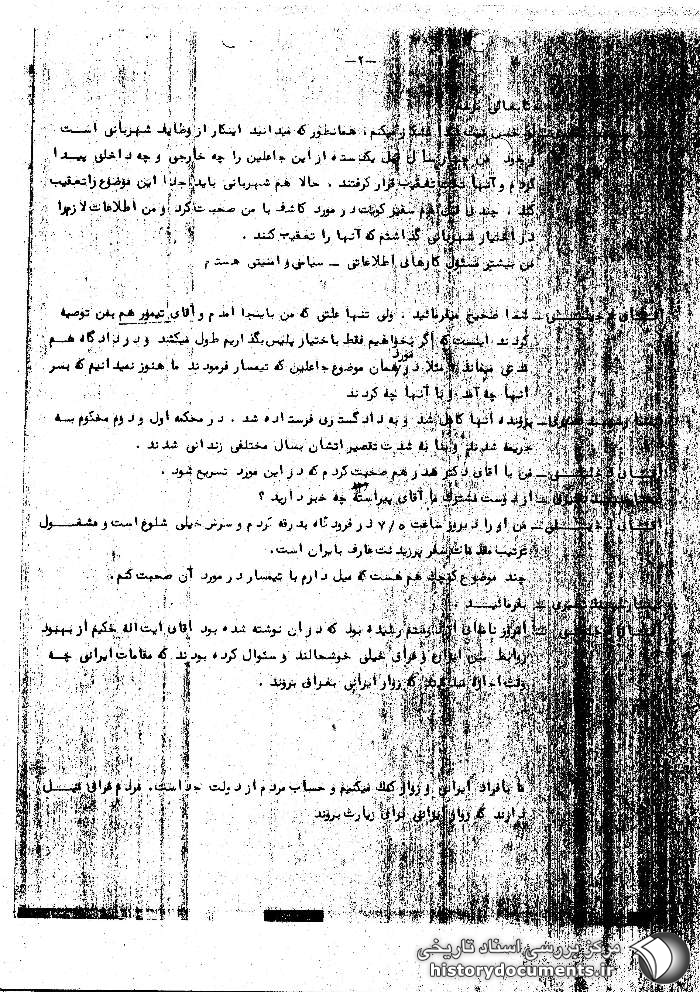 -۲-
میکنم، همانطور که میدانید اینکار از وظایف شهربانی است
یکدسته از این جاعلین را چه خارجی و چه داخلی پیدا
کردم و آنها تحت تعقیب قرار گرفتند . حالا هم شهربانی باید جداً این موضوع را تعقیب
کند . چندی قبل هم سفیر کویت در مورد کاشف با من صحبت کرد و من اطلاعات لازم را
در اختیار شهربانی گذاشتم که آنها را تعقیب کنند .
من بیشتر مسئول کارهای اطلاعاتی – سیاسی و امنیتی هستم
شما صحیح میفرمائید . ولی تنها علتی که من باینجا آمدم و آقای تیمور هم بمن توصیه
کردند اینست که اگر بخواهیم فقط باختیار پلیس بگذاریم طول میکشد و در دادگاه هم
مدتی میماند مثلا در مورد همان موضوع جاعلین که تیمسار فرمودند ما هنوز نمیدانیم که بسر
آنها چه آمد و با آنها چه کردند
پرونده آنها کامل شد و به دادگستری فرستاده شد . در محکمه اول و دوم محکوم به
جریمه شدند و بنا به شدت تقصیراتشان بسال مختلفی زندانی شدند .
من با آقای دکتر صدر هم صحبت کردم که در این مورد تسریع شود .
از دوست مشترک ما آقای پیراسته چه خبر دارید ؟
من او را دیروز ساعت ۷/۵ در فرودگاه بدرقه کردم و سرش خیلی شلوغ است و مشغول
ترتیب مقدمات سفر پرزیدنت عارف بایران است.
چند موضوع کوچک هم هست که میل دارم با تیمسار در مورد آن صحبت کنم.
بفرمائید .
امروز نامه‌ای از رسیده بود که در آن نوشته شده بود آقای آیت اله حکیم از بهبود
روابط بین ایران و عراق خیلی خوشحالند و سئوال کرده بودند که مقامات ایرانی چه
وقت اجازه میدهند که زوار ایرانی بعراق بروند .
ما بافراد ایرانی و زوار کمک میکنیم و حساب مردم از دولت جداست. مردم عراق میل
دارند که زوار ایرانی برای زیارت بروند
مرکز بررسی اسناد تاریخی
historydocuments.ir